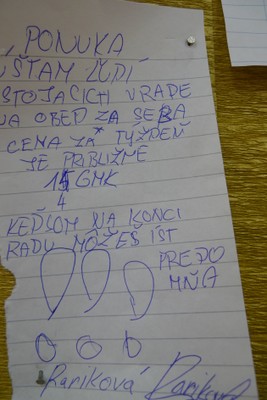 „PONUKA
ÚŠŤAM ĽUDÍ
STOJACICH V RADE
NA OBED ZA SEBA
CENA ZA* TÝŽDEŇ
JE PRIBLIŽNE
GMK
4
KEĎ SOM NA KONCI
RADU MÔŽEŠ ÍST
PREDO
MŇA
Raniková Raniková